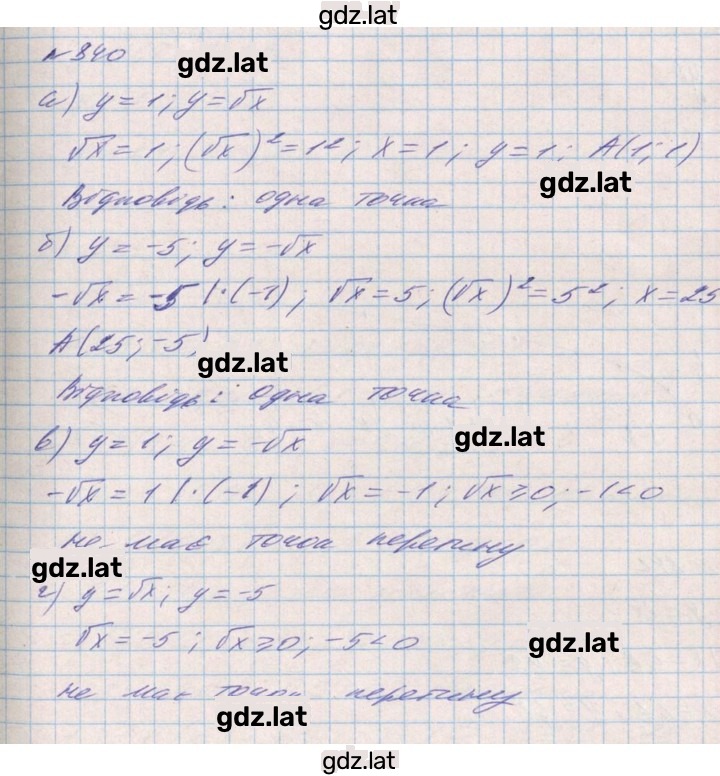 gdz.lat
№840
gdz.lat
а) y = 1; y = √x
√x = 1; (√x)² = 1²; x = 1; y = 1; A(1; 1)
gdz.lat
Відповідь: одна точка
б) y = -5; y = -√x
-√x = -5 |·(-1); √x = 5; (√x)² = 5²; x = 25
A(25; -5)
gdz.lat
Відповідь: одна точка
в) y = 1; y = -√x
gdz.lat
-√x = 1 |·(-1); √x = -1; √x ≥ 0; -1 < 0
не має точок перетину
gdz.lat
г) y = √x; y = -5
√x = -5; √x ≥ 0; -5 < 0
gdz.lat
не має точок перетину
gdz.lat
gdz.lat